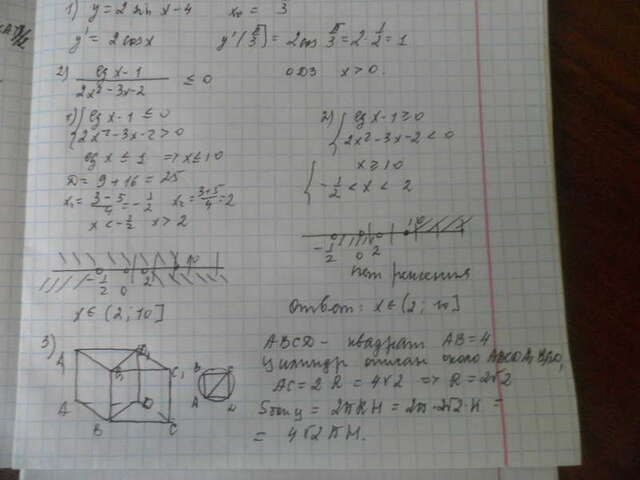 1) y = 2 sin x - 4   x₀ = 3
y' = 2cosx   y'(π/3) = 2cos π/3 = 2·1/2 = 1
2) (lg x-1)/(2x²-3x-2) ≤ 0   ОДЗ x>0.
1) { lg x-1 ≤ 0
2x²-3x-2>0
lg x ≤ 1 ⇒ x ≤ 10
D = 9+16 = 25
x₁ = (3-5)/4 = -1/2   x₂ = (3+5)/4 = 2
x < -1/2   x > 2
-1/2 0 2 10
x ∈ (2; 10]
2) { lg x-1 ≥ 0
2x²-3x-2 < 0
{ x ≥ 10
-1/2 < x < 2
-1/2 0 2 10
нет решения
Ответ: x ∈ (2; 10]
3)
A₁ D₁ B₁ C₁
A D B C
B C A D
ABCD - квадрат AB = 4
Цилиндр описан около ABCDA₁B₁C₁D₁
AC = 2R = 4√2 ⇒ R = 2√2
Sбок ц = 2πRH = 2π·2√2·H =
= 4√2πH.